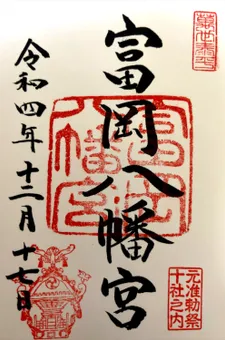 富岡八幡宮
富岡
八幡宮
元准勅祭
十社之内
令和四年十二月十七日